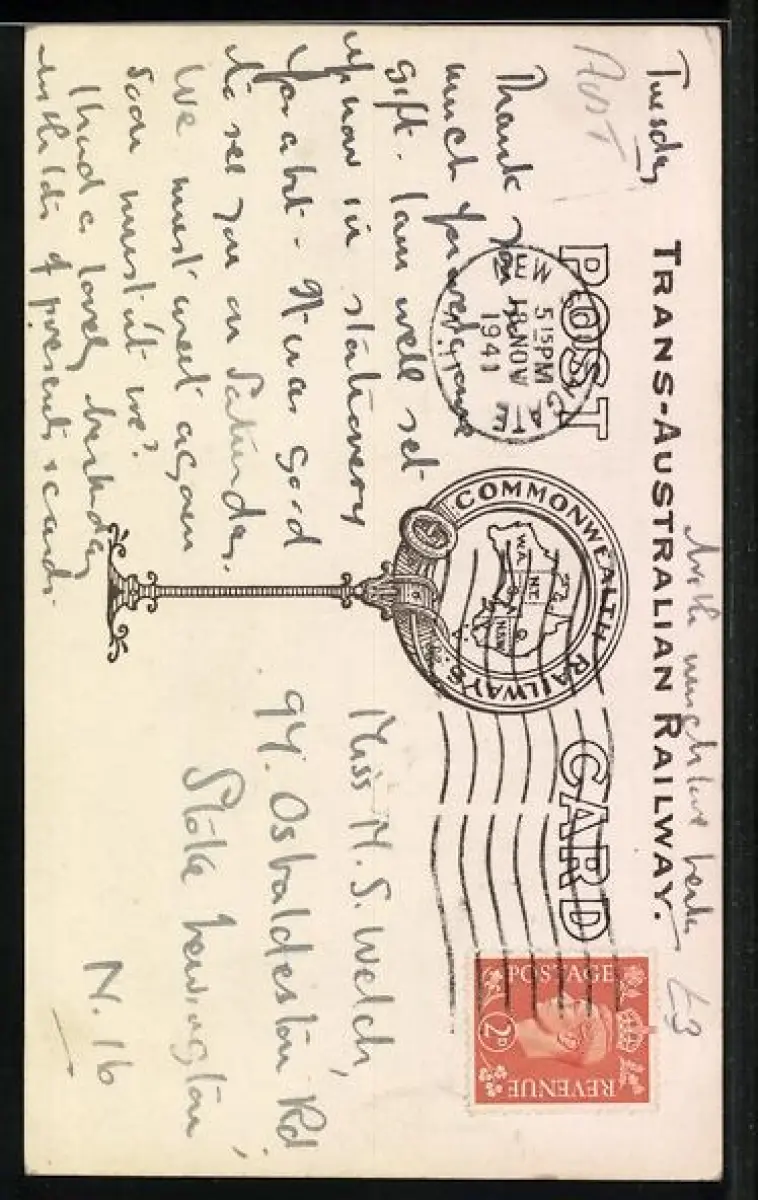 With much love
£3
TRANS-AUSTRALIAN RAILWAY.
Tuesday
POST CARD
AUST
COMMONWEALTH RAILWAYS
W.A.
N.T.
Q
S.A.
N.S.W.
NEW GATE
5 15PM
18 NOV
1941
N.11
POSTAGE
REVENUE
2D
Thank you
much for
gift. I am well set
up now in stationery
for a bit - It was good
to see you on Saturday.
We must meet again
soon mustn't we?
I had a lovely birthday
with lots of presents & cards.
Miss M. S. Welch,
94. Osbaldeston Rd,
Stoke Newington
N.16